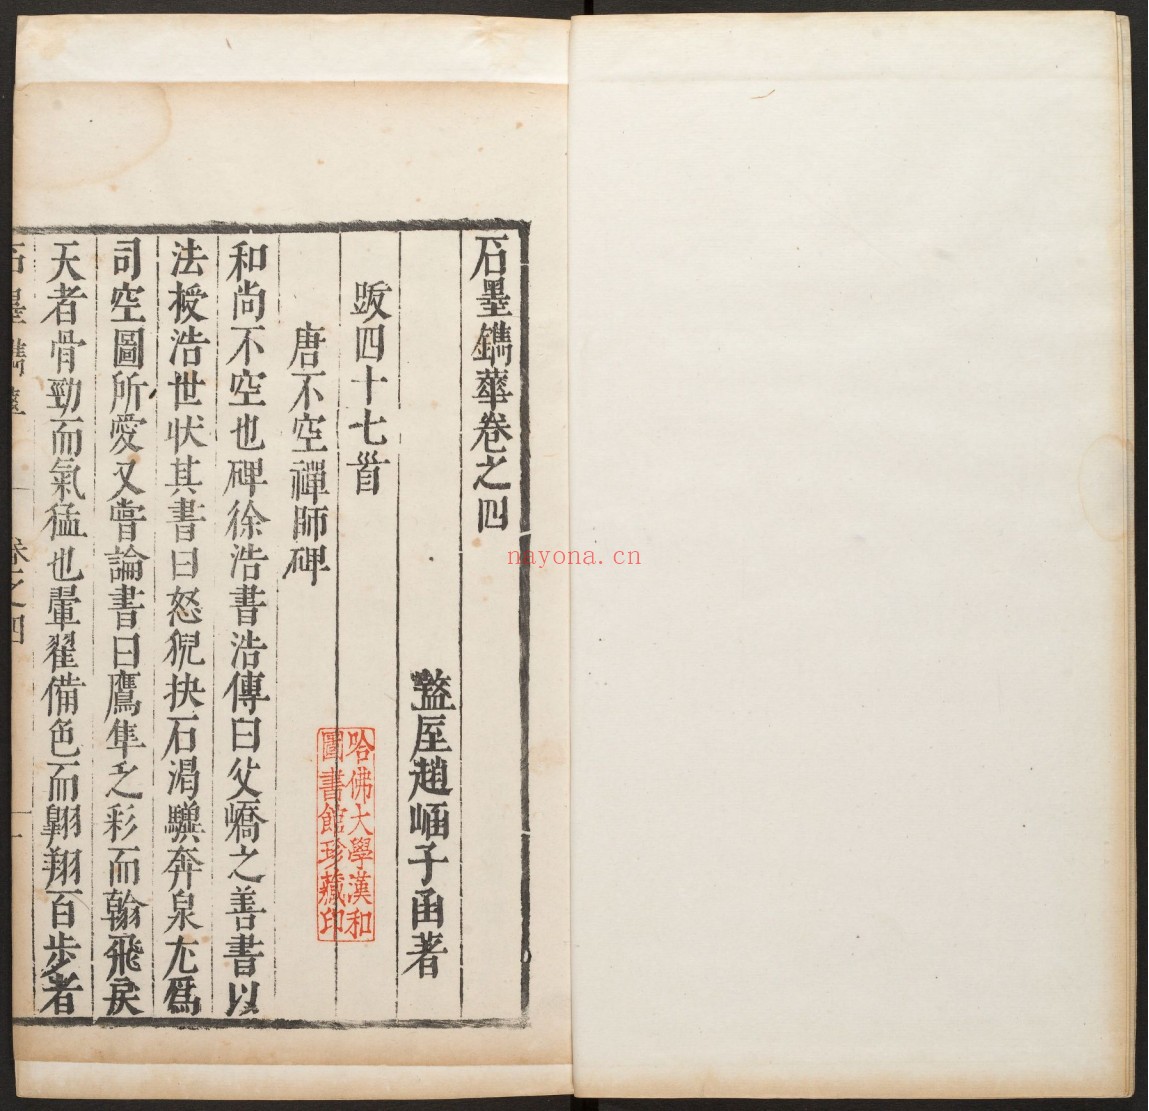 石墨鐫華卷之四
盩厔趙崡子函著
跋四十七首
唐不空禪師碑
和尚不空也碑徐浩書浩傳曰父嶠之善書以
法授浩世狀其書曰怒猊抉石渴驥奔泉尤爲
司空圖所愛又嘗論書曰鷹隼乏彩而翰飛戾
天者骨勁而氣猛也翬翟備色而翺翔百步者
石墨鐫華 卷之四 一
哈佛大學漢和
圖書館珍藏印
nayona.cn